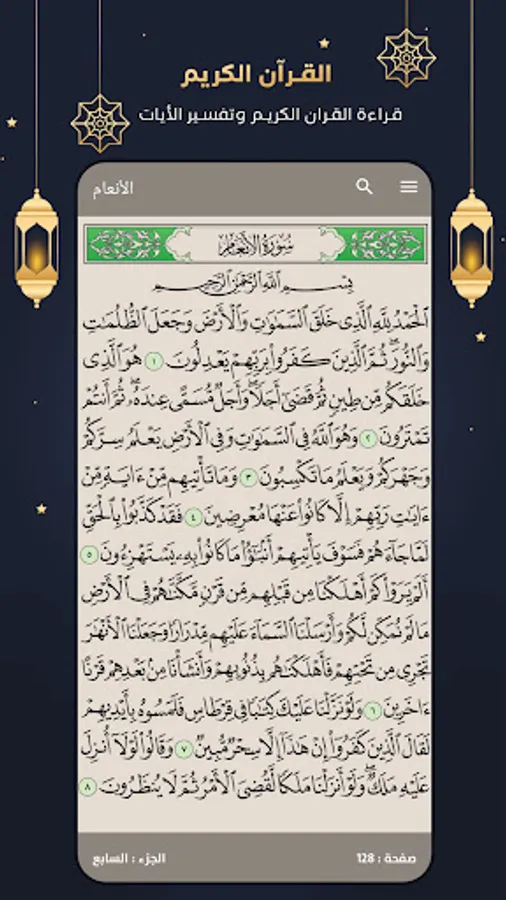 القرآن الكريم
قراءة القران الكريم وتفسير الأيات
الأنعام
سُورَةُ الأَنْعَامِ
بِسْمِ اللَّهِ الرَّحْمَٰنِ الرَّحِيمِ
ٱلْحَمْدُ لِلَّهِ ٱلَّذِى خَلَقَ ٱلسَّمَٰوَٰتِ وَٱلْأَرْضَ وَجَعَلَ ٱلظُّلُمَٰتِ
وَٱلنُّورَ ۖ ثُمَّ ٱلَّذِينَ كَفَرُوا۟ بِرَبِّهِمْ يَعْدِلُونَ ١ هُوَ ٱلَّذِى
خَلَقَكُم مِّن طِينٍ ثُمَّ قَضَىٰٓ أَجَلًا ۖ وَأَجَلٌ مُّسَمًّى عِندَهُۥ ۖ ثُمَّ أَنتُمْ
تَمْتَرُونَ ٢ وَهُوَ ٱللَّهُ فِى ٱلسَّمَٰوَٰتِ وَفِى ٱلْأَرْضِ يَعْلَمُ سِرَّكُمْ
وَجَهْرَكُمْ وَيَعْلَمُ مَا تَكْسِبُونَ ٣ وَمَا تَأْتِيهِم مِّنْ ءَايَةٍ مِّنْ
ءَايَٰتِ رَبِّهِمْ إِلَّا كَانُوا۟ عَنْهَا مُعْرِضِينَ ٤ فَقَدْ كَذَّبُوا۟ بِٱلْحَقِّ
لَمَّا جَآءَهُمْ ۖ فَسَوْفَ يَأْتِيهِمْ أَنۢبَٰٓؤُا۟ مَا كَانُوا۟ بِهِۦ يَسْتَهْزِءُونَ ٥
أَلَمْ يَرَوْا۟ كَمْ أَهْلَكْنَا مِن قَبْلِهِم مِّن قَرْنٍ مَّكَّنَّٰهُمْ فِى ٱلْأَرْضِ
مَا لَمْ نُمَكِّن لَّكُمْ وَأَرْسَلْنَا ٱلسَّمَآءَ عَلَيْهِم مِّدْرَارًا وَجَعَلْنَا ٱلْأَنْهَٰرَ
تَجْرِى مِن تَحْتِهِمْ فَأَهْلَكْنَٰهُم بِذُنُوبِهِمْ وَأَنشَأْنَا مِنۢ بَعْدِهِمْ قَرْنًا
ءَاخَرِينَ ٦ وَلَوْ نَزَّلْنَا عَلَيْكَ كِتَٰبًا فِى قِرْطَاسٍ فَلَمَسُوهُ بِأَيْدِيهِمْ
لَقَالَ ٱلَّذِينَ كَفَرُوٓا۟ إِنْ هَٰذَآ إِلَّا سِحْرٌ مُّبِينٌ ٧ وَقَالُوا۟ لَوْلَآ أُنزِلَ
عَلَيْهِ مَلَكٌ ۖ وَلَوْ أَنزَلْنَا مَلَكًا لَّقُضِىَ ٱلْأَمْرُ ثُمَّ لَا يُنظَرُونَ ٨
صفحة : 128 الجزء : السابع